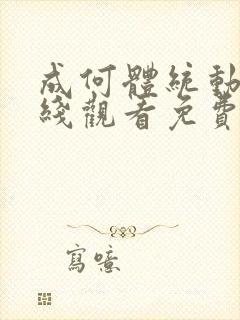 成何體統動
綫觀看免費
寫噫